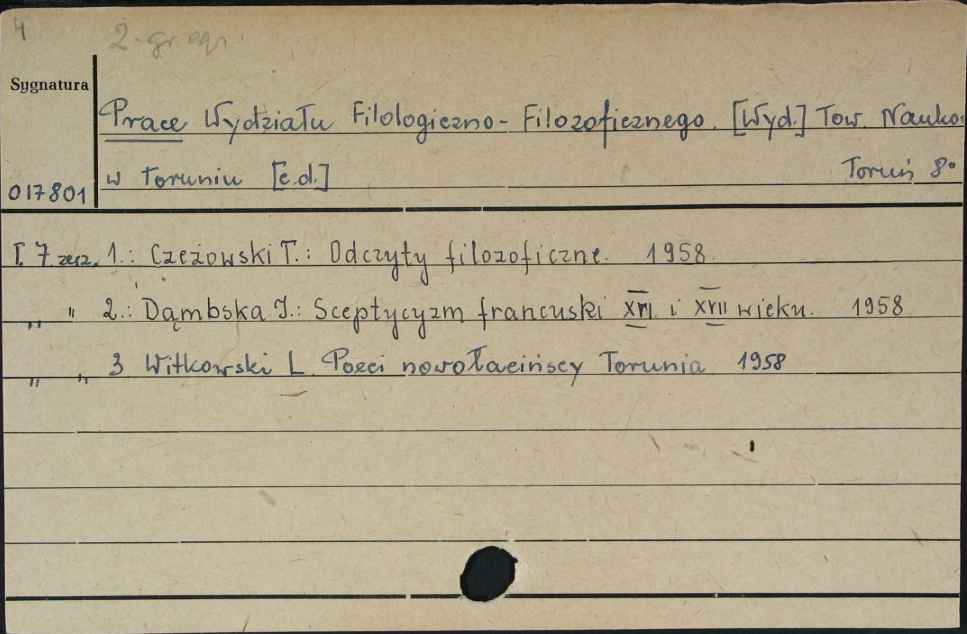 4 2-gi egz.
Sygnatura
Prace Wydziału Filologiczno-Filozoficznego. [Wyd.] Tow. Nauko.
017801 w Toruniu [e.d.] Toruń 8°
T. 7 zesz. 1.: Czeżowski T.: Odczyty filozoficzne. 1958.
„ " 2.: Dąmbska I.: Sceptycyzm francuski XVI i XVII wieku. 1958
„ „ 3 Witkowski L. Poeci nowołacińscy Torunia 1958